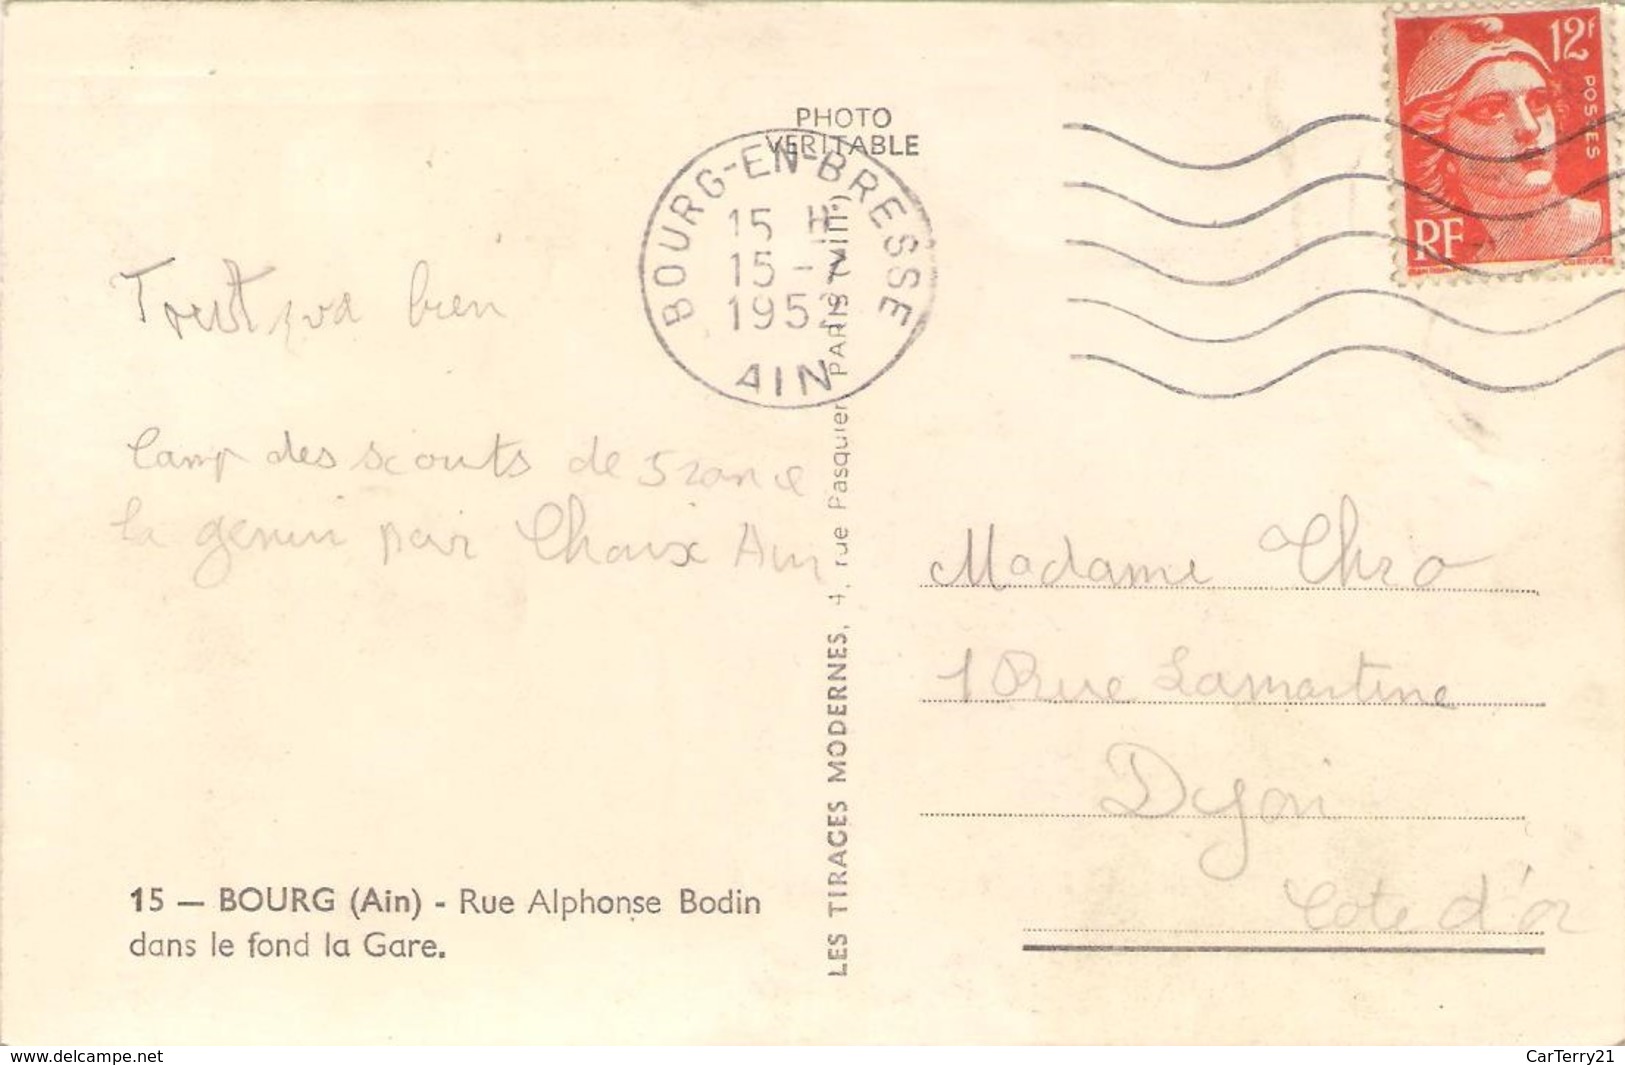 12F
POSTES
RF
PHOTO
VERITABLE
BOURG-EN-BRESSE
15 H
15 -
195
AIN
Tout va bien
Camp des scouts de France
la genin par Chaix Ain
Madame Thro
1 Rue Lamartine
Dyon
Cote d'or
15 — BOURG (Ain) - Rue Alphonse Bodin
dans le fond la Gare.
LES TIRAGES MODERNES, 4, rue Pasquier, PARIS (VIIIe)
www.delcampe.net
CarTerry21